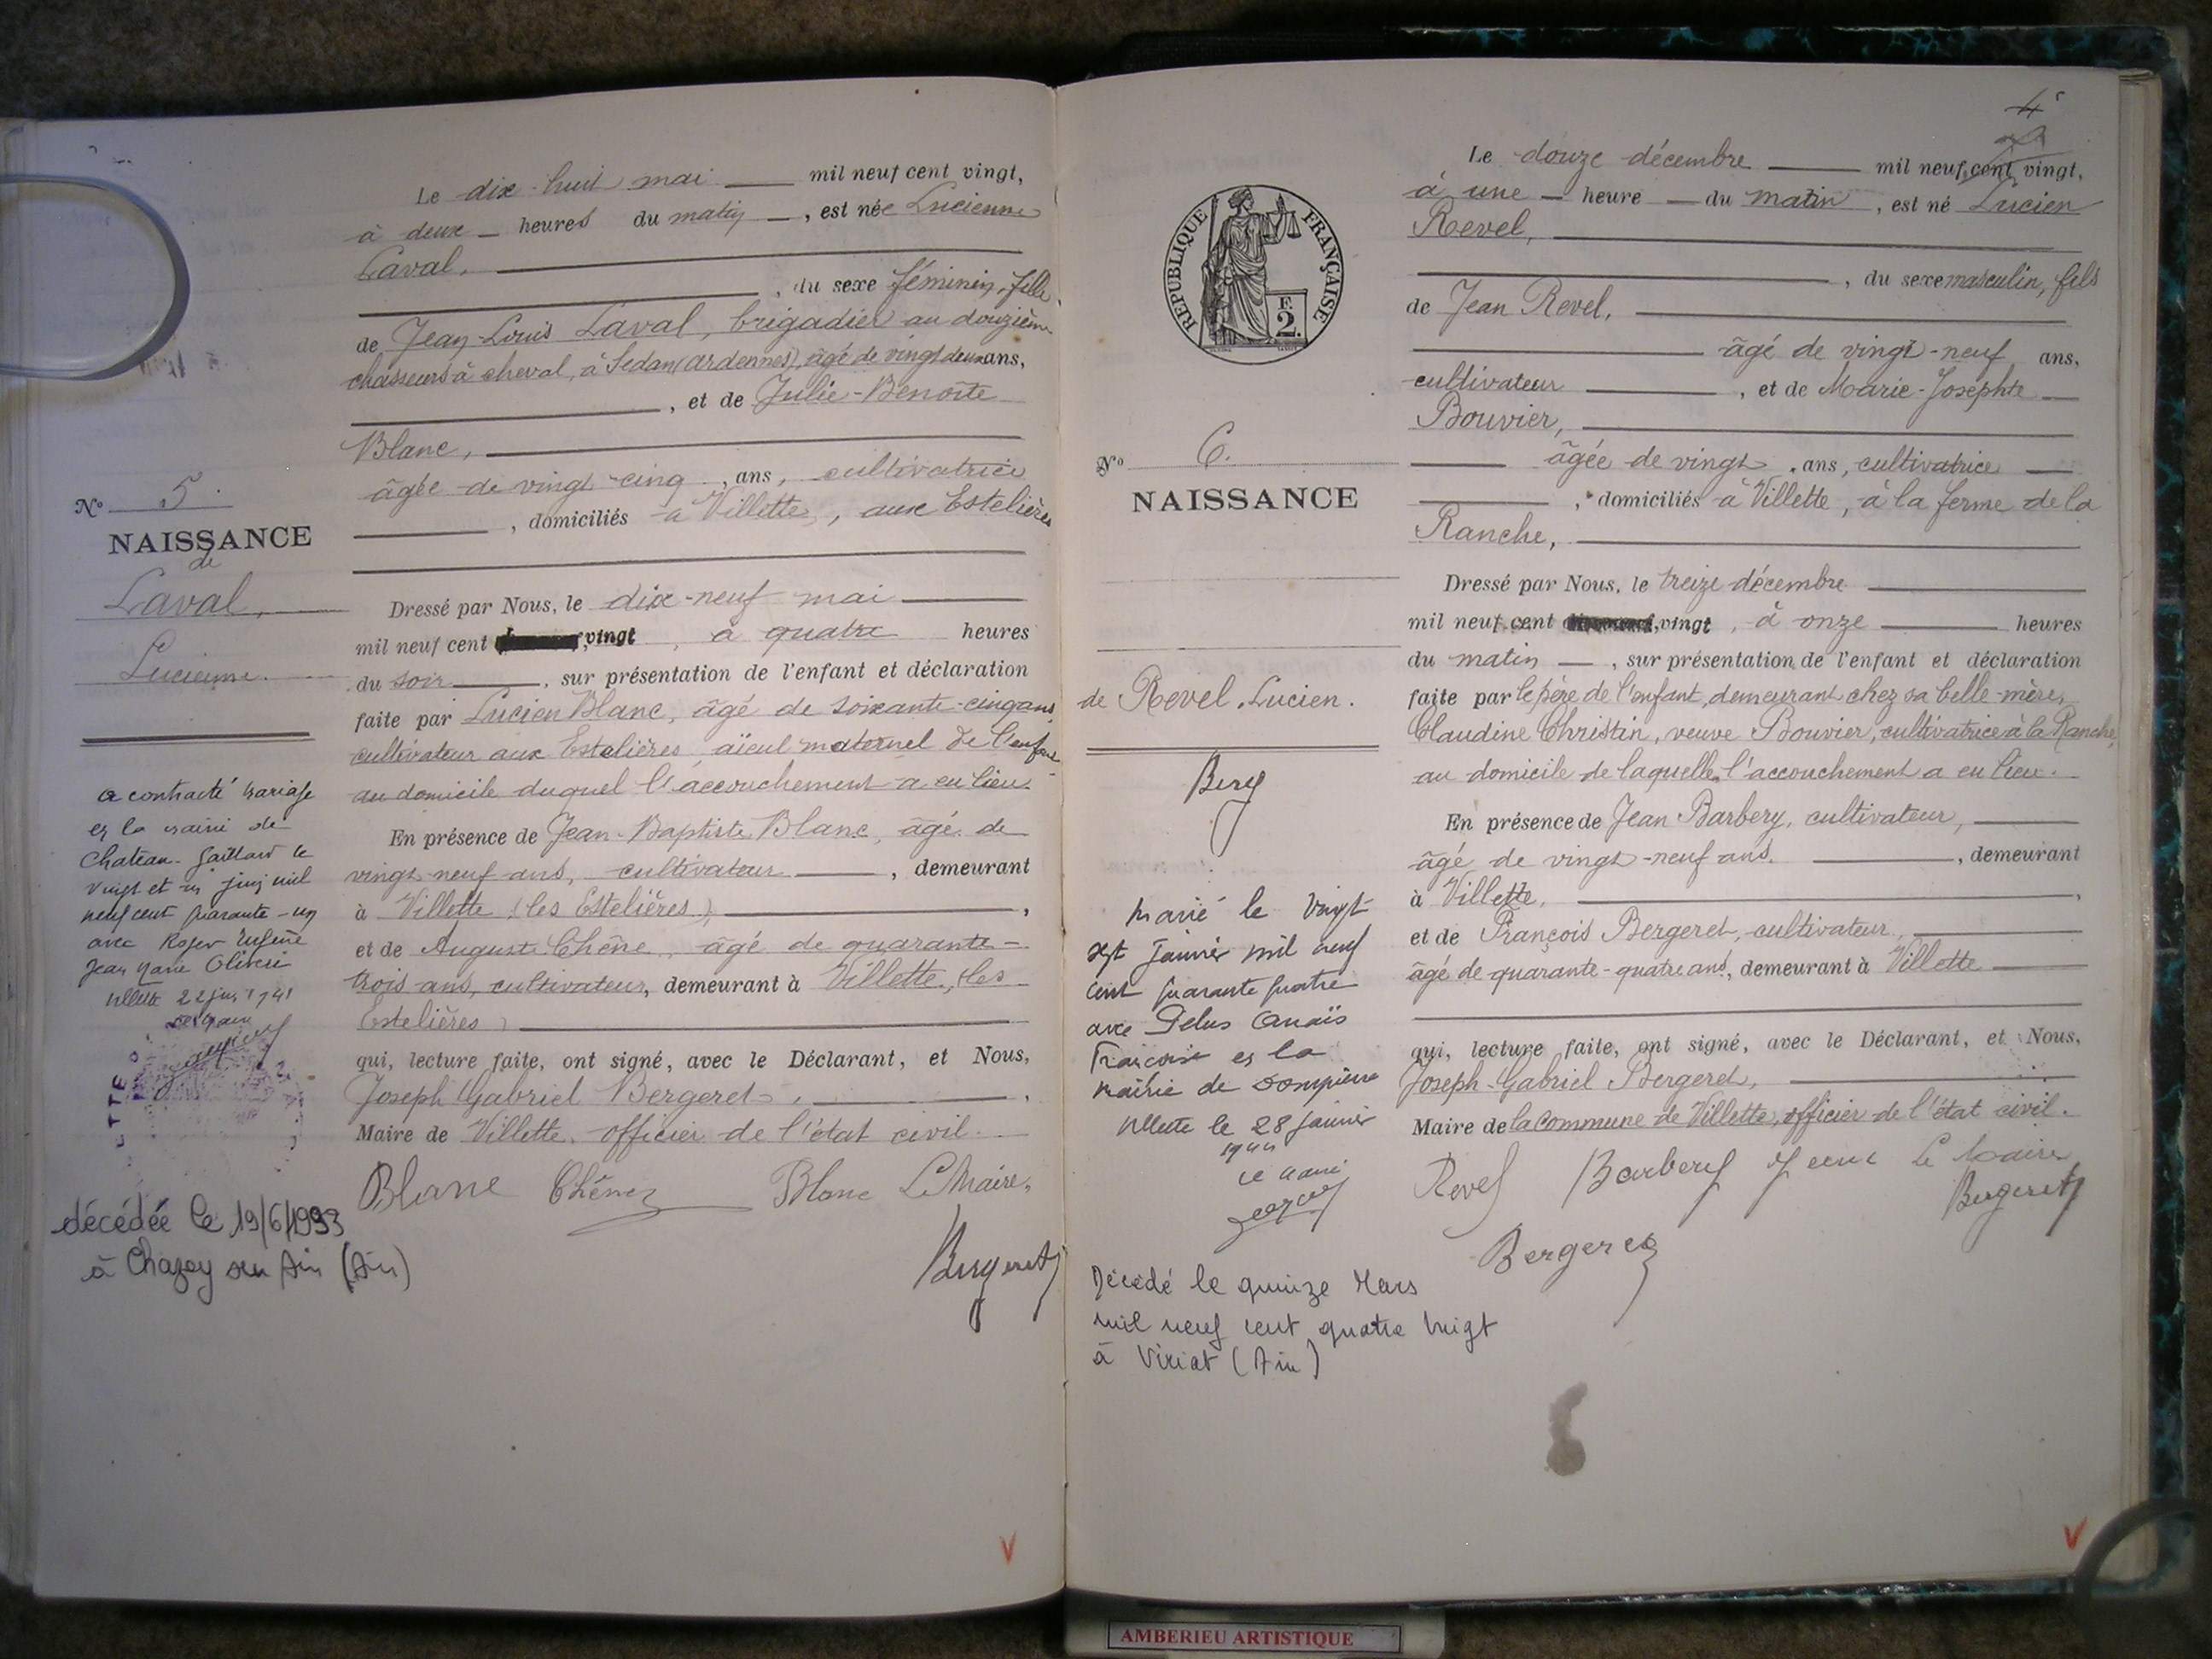 Le dix-huit mai mil neuf cent vingt,
à deux heures du matin, est née Lucienne
Laval,
, du sexe féminin, fille
de Jean-Louis Laval, brigadier au douzième
chasseurs à cheval, à Sedan (Ardennes), âgé de vingt deux ans,
, et de Julie-Benoîte
Blanc,
âgée de vingt-cinq, ans, cultivatrice
, domiciliés à Villette, aux Estelières
Nº 5.
NAISSANCE
de
Laval,
Lucienne.
Dressé par Nous, le dix-neuf mai
mil neuf cent vingt, à quatre heures
du soir, sur présentation de l'enfant et déclaration
faite par Lucien Blanc, âgé de soixante-cinq ans,
cultivateur aux Estelières, aïeul maternel de l'enfant
au domicile duquel l'accouchement a eu lieu.
En présence de Jean-Baptiste Blanc, âgé de
vingt-neuf ans, cultivateur, demeurant
à Villette (les Estelières),
et de Auguste Chêne, âgé de quarante-
trois ans, cultivateur, demeurant à Villette, (les
Estelières)
qui, lecture faite, ont signé, avec le Déclarant, et Nous,
Joseph Gabriel Bergeret,
Maire de Villette, officier de l'état civil.
Blanc Chêne Blanc Le Maire,
Bergeret
a contracté mariage
en la mairie de
Chateau-Gaillard le
vingt et un juin mil
neuf cent quarante-un
avec Roger Eugène
Jean Marie Oliveri
Villette 22 juin 1941
Le Maire
décédée le 19/6/1993
à Chazey sur Ain (Ain)
V
4
Le douze décembre mil neuf cent vingt,
à une heure du matin, est né Lucien
Revel,
, du sexe masculin, fils
de Jean Revel,
âgé de vingt-neuf ans,
cultivateur, et de Marie-Josephte
Bouvier,
âgée de vingt, ans, cultivatrice
, domiciliés à Villette, à la ferme de la
Ranche,
RÉPUBLIQUE FRANÇAISE
F.
2.
Nº 6.
NAISSANCE
de Revel, Lucien.
Berg
Dressé par Nous, le treize décembre
mil neuf cent vingt, à onze heures
du matin, sur présentation de l'enfant et déclaration
faite par le père de l'enfant, demeurant chez sa belle-mère,
Claudine Christin, veuve Bouvier, cultivatrice à la Ranche,
au domicile de laquelle l'accouchement a eu lieu.
En présence de Jean Barbery, cultivateur,
âgé de vingt-neuf ans, demeurant
à Villette,
et de François Bergeret, cultivateur,
âgé de quarante-quatre ans, demeurant à Villette
qui, lecture faite, ont signé, avec le Déclarant, et Nous,
Joseph-Gabriel Bergeret,
Maire de la Commune de Villette, officier de l'état civil.
Revel Barbery Jean Le Maire
Bergeret
Bergeret
Marié le vingt
sept Janvier mil neuf
cent quarante quatre
avec Pelus Anaïs
Françoise en la
mairie de Dompierre
Villette le 28 janvier
1944
Le Maire
Décédé le quinze Mars
mil neuf cent quatre vingt
à Viriat (Ain)
V
AMBERIEU ARTISTIQUE